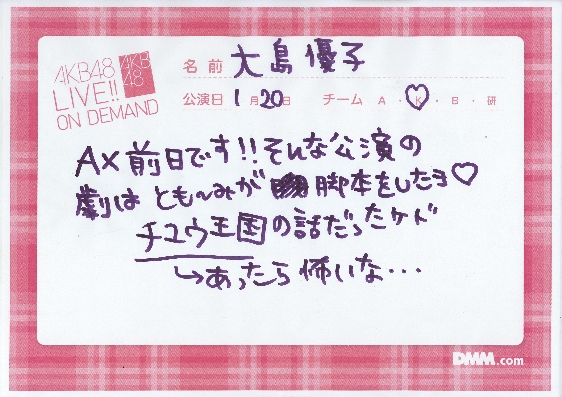 AKB48
LIVE!!
ON DEMAND
AKB
48
名前 大島優子
公演日 1月20日 チーム A・K・B・研
AX前日です!!そんな公演の
劇はとも〜みが 脚本をしたヨ♡
チユウ王国の話だったケド
↳あったら怖いな...
DMM.com